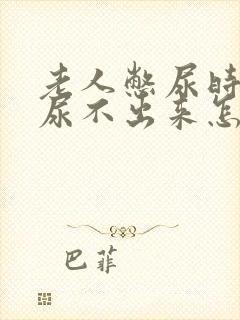 老人憋尿时
尿不出来怎
巴菲